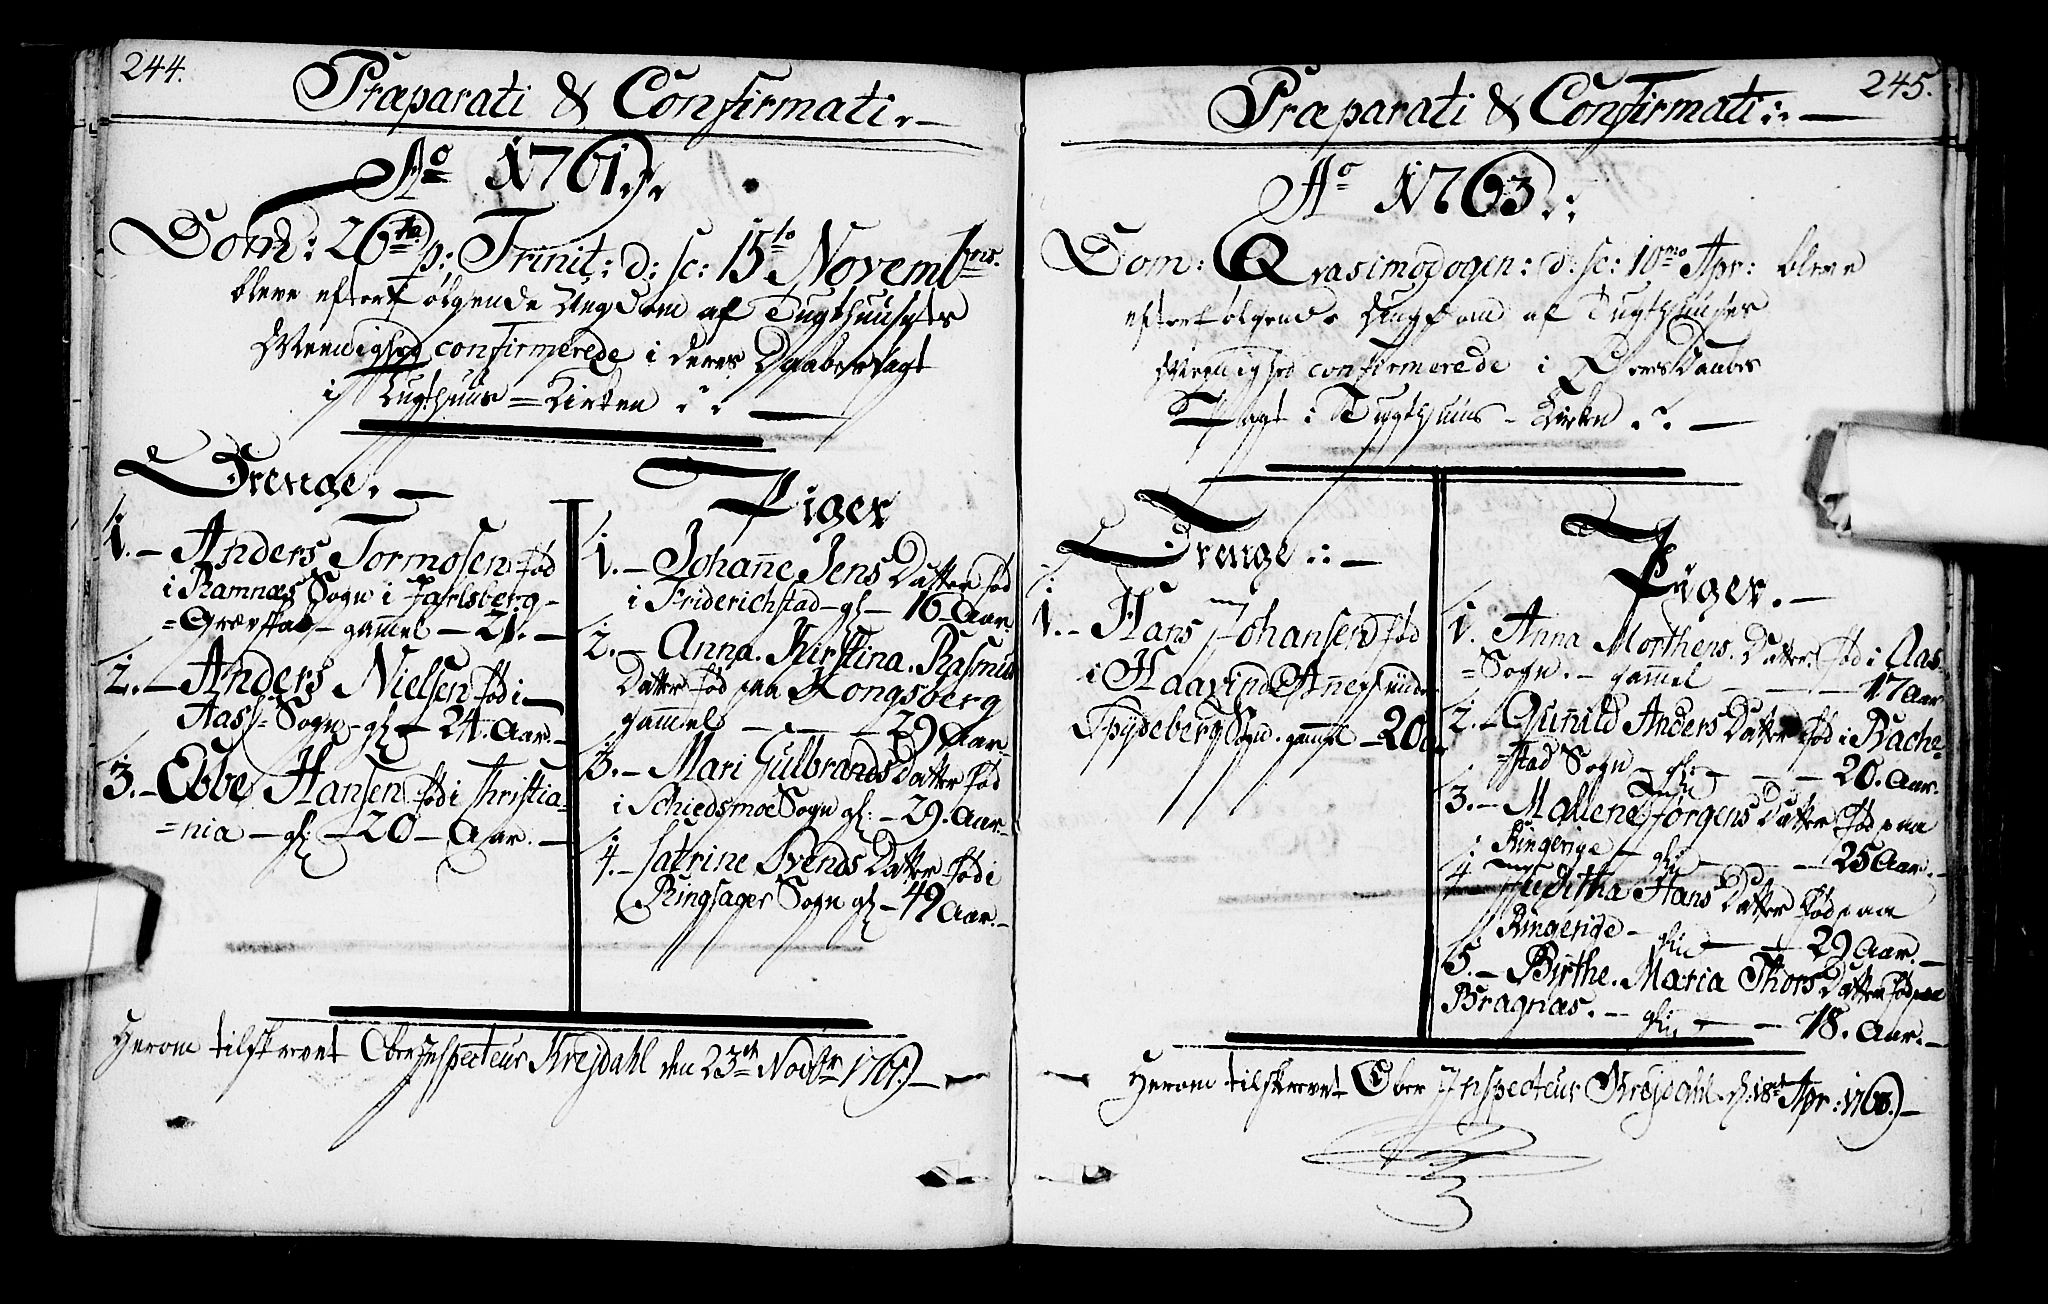 244.
Præparati & Confirmati.
Aº 1761.
Dom: 26ta p: Trinit: d: sc: 15to Novembris
bleve efterfølgende Ungdom af Tugthuusets
Menighed confirmerede i deres Daabes Pagt
i Tugthuus=Kirken
Drenge.
1. Anders Tormosen fød
i Ramnæs Sogn i Jarlsberg=
=Grævskab - gammel - 21.
2. Anders Nielsen fød i
Aass=Sogn - gl: - 24. Aar.
3. Ebbe Hansen fød i Christia=
=nia - gl: - 20 - Aar.
Piger
1. Johanne Jens Datter fød
i Friderichstad - gl: - 16 - Aar
2. Anna Kirstina Rasmus
Datter fød paa Kongsberg
gammel - 29 Aar
3. Mari Gulbrands Datter fød
i Schiedsmoe Sogn gl: - 29. Aar.
4. Catrine Svends Datter fød i
Ringsager Sogn gl: - 49 Aar.
Herom tilskrevet Ober Inspecteur Krejdahl den 23de Novbr 1761.
245.
Præparati & Confirmati:
Aº 1763.
Dom: Qvasimodogen: d: sc: 10mo Apr: bleve
efterfølgende Ungdom af Tugthuuses
Menighed confirmerede i Deres Daabes
Pagt i Tugthuus-Kirken
Drenge:
1. Hans Johansen fød
i Haavind Annex under
Spydeberg Sogn. gammel - 20 A
Pyger.
1. Anna Morthens Datter fød i Aas
=Sogn. - gammel - 17 Aar
2. Gunild Anders Datter fød i Rache=
=stad Sogn - gl: - 20. Aar.
3. Mallene Jørgens Datter fød paa
Ringerige - gl: - 25 Aar.
4. Juditha Hans Datter fød paa
Ringerige - gl: - 29 Aar.
5. Birthe Maria Thors Datter fød paa
Bragnæs. - gl: - 18. Aar.
Herom tilskrevet Ober Inspecteur Krejdahl d: 18de Apr: 1763.